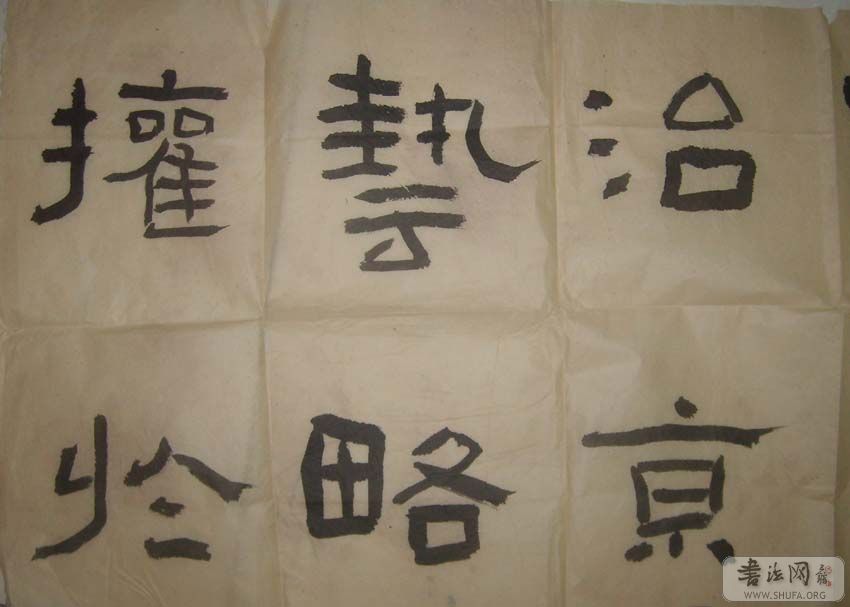 治京
藝略
權於
書法网
WWW.SHUFA.ORG